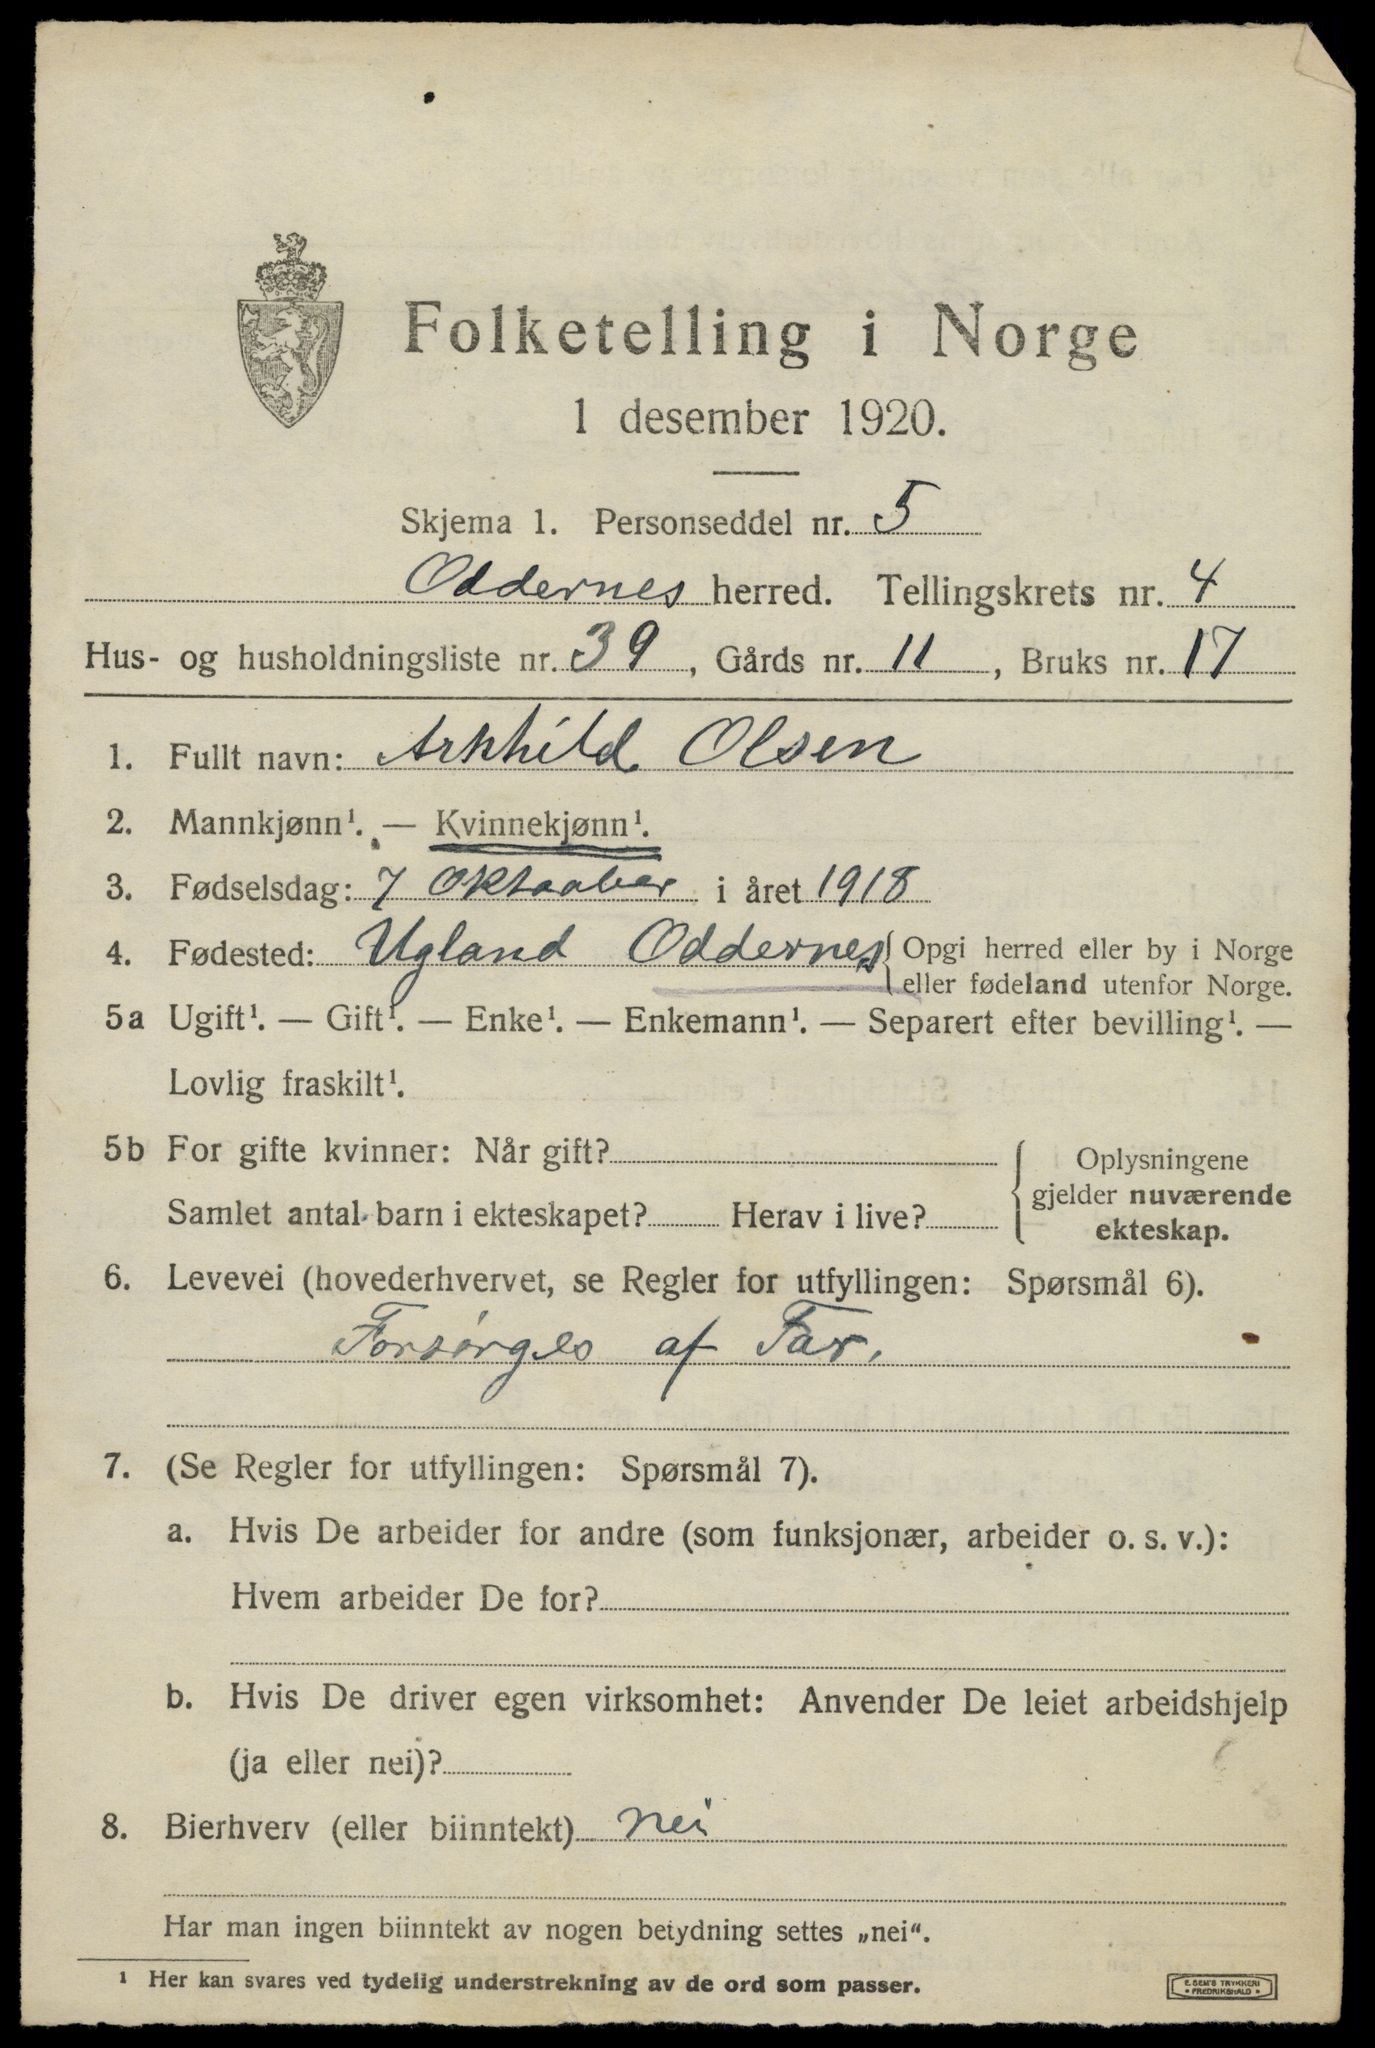 Folketelling i Norge
1 desember 1920.
Skjema 1. Personseddel nr. 5
Oddernes herred. Tellingskrets nr. 4
Hus- og husholdningsliste nr. 39, Gårds nr. 11, Bruks nr. 17
1. Fullt navn: Arnhild Olsen
2. Mannkjønn¹. — Kvinnekjønn¹.
3. Fødselsdag: 7 Oktoober i året 1918
4. Fødested: Ugland Oddernes { Opgi herred eller by i Norge
eller fødeland utenfor Norge.
5a Ugift¹. — Gift¹. — Enke¹. — Enkemann¹. — Separert efter bevilling¹. —
Lovlig fraskilt¹.
5b For gifte kvinner: Når gift?
Samlet antal barn i ekteskapet? Herav i live?
Oplysningene
gjelder nuværende
ekteskap.
6. Levevei (hovederhvervet, se Regler for utfyllingen: Spørsmål 6).
Forsørges af Far.
7. (Se Regler for utfyllingen: Spørsmål 7).
a. Hvis De arbeider for andre (som funksjonær, arbeider o. s. v.):
Hvem arbeider De for?
b. Hvis De driver egen virksomhet: Anvender De leiet arbeidshjelp
(ja eller nei)?
8. Bierhverv (eller biinntekt) nei
Har man ingen biinntekt av nogen betydning settes „nei“.
¹ Her kan svares ved tydelig understrekning av de ord som passer.
E. SEM'S TRYKKERI
• FREDRIKSHALD •